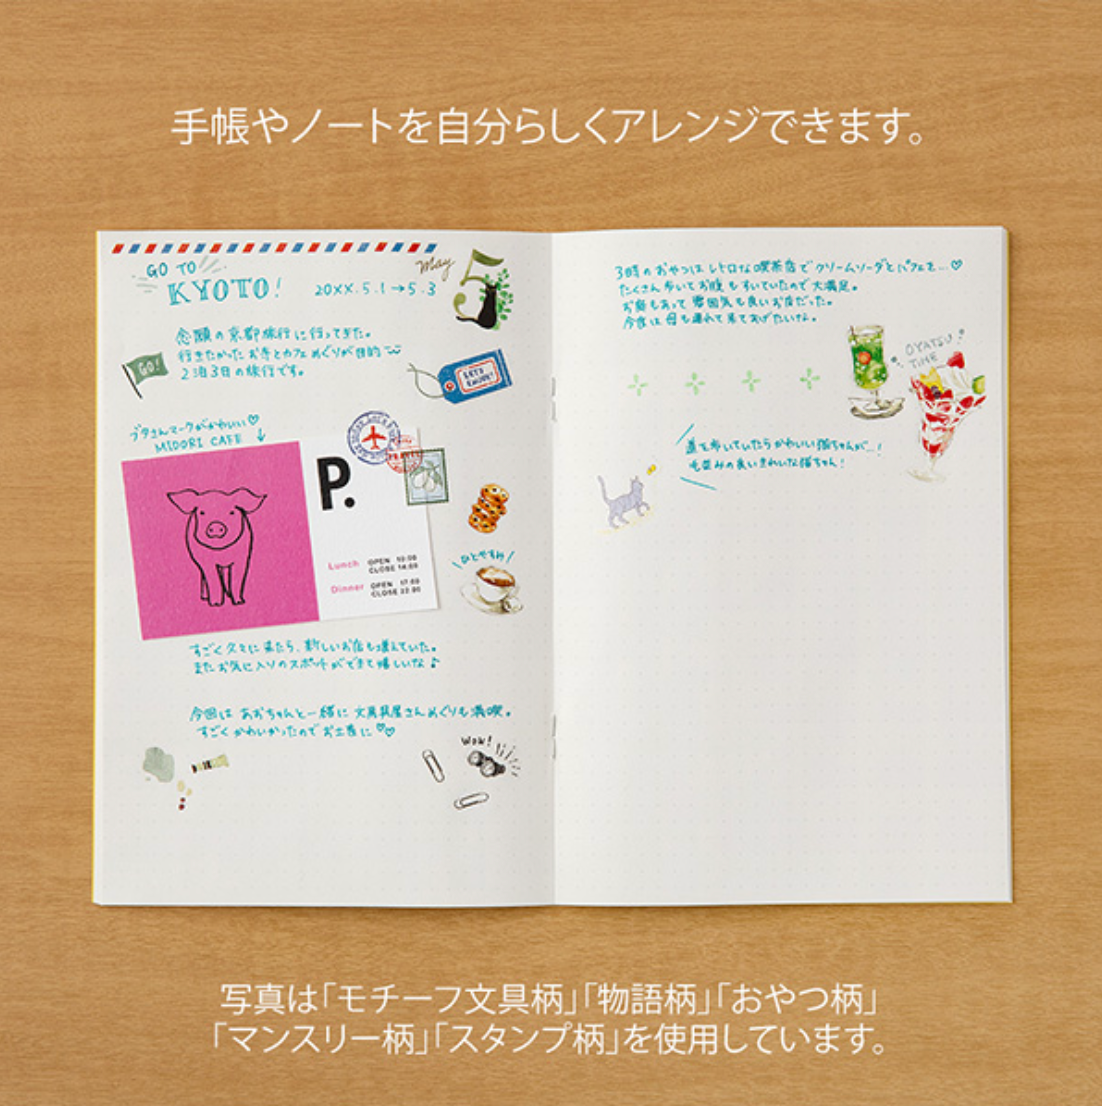 手帳やノートを自分らしくアレンジできます。
GO TO
KYOTO!
20XX.5.1→5.3
May
5
念願の京都旅行に行ってきた。
行きたかったお寺とカフェめぐりが目的
2泊3日の旅行です。
GO!
LET'S
ENJOY!
ブタさんマークがかわいい♡
MIDORI CAFE ↓
P.
Lunch OPEN 10:00
CLOSE 14:00
Dinner OPEN 17:00
CLOSE 22:00
ひとやすみ
すごく久々に来たら、新しいお店も増えていた。
またお気に入りのスポットができて嬉しいな♪
今回は あおちゃんと一緒に 文房具屋さんめぐりも満喫。
すごくかわいかったのでお土産に♡♡
Wow!
3時のおやつはレトロな喫茶店でクリームソーダとパフェを…♡
たくさん歩いてお腹もすいていたので大満足。
お庭もあって雰囲気も良いお店だった。
今度は母も連れて来てあげたいな。
OYATSU
TIME
道を歩いていたらかわいい猫ちゃんが…!
毛並みの良いきれいな猫ちゃん!
写真は「モチーフ文具柄」「物語柄」「おやつ柄」
「マンスリー柄」「スタンプ柄」を使用しています。